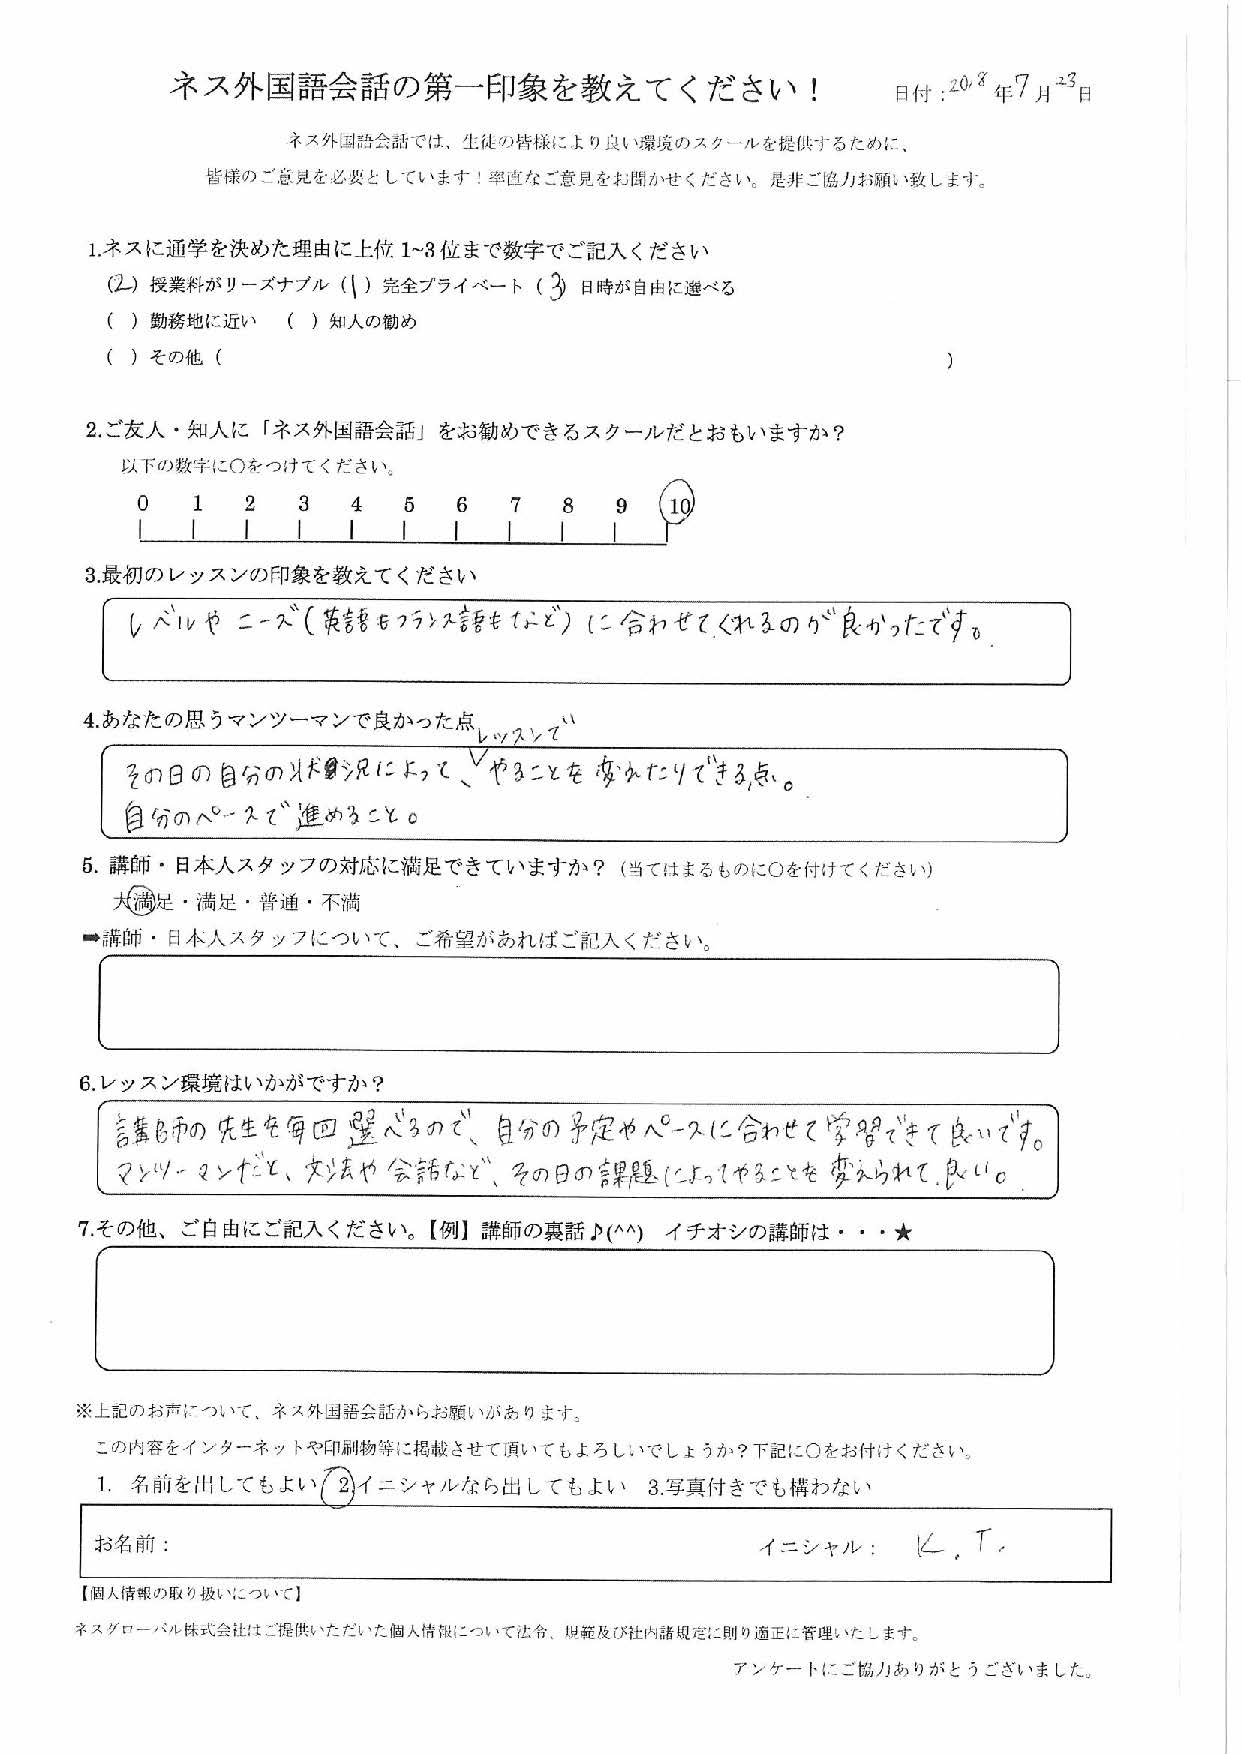 ネス外国語会話の第一印象を教えてください！
日付：2018年7月23日
ネス外国語会話では、生徒の皆様により良い環境のスクールを提供するために、
皆様のご意見を必要としています！率直なご意見をお聞かせください。是非ご協力お願い致します。
1.ネスに通学を決めた理由に上位1~3位まで数字でご記入ください
（2）授業料がリーズナブル（1）完全プライベート（3）日時が自由に選べる
（ ）勤務地に近い （ ）知人の勧め
（ ）その他（ ）
2.ご友人・知人に「ネス外国語会話」をお勧めできるスクールだとおもいますか？
以下の数字に〇をつけてください。
0 1 2 3 4 5 6 7 8 9 10
3.最初のレッスンの印象を教えてください
レベルやニーズ（英語もフランス語もなど）に合わせてくれるのが良かったです。
4.あなたの思うマンツーマンで良かった点
レッスンで
その日の自分の状況によって、やることを変えたりできる点。
自分のペースで進めること。
5. 講師・日本人スタッフの対応に満足できていますか？（当てはまるものに〇を付けてください）
大満足・満足・普通・不満
➡講師・日本人スタッフについて、ご希望があればご記入ください。
6.レッスン環境はいかがですか？
講師の先生を毎回選べるので、自分の予定やペースに合わせて学習できて良いです。
マンツーマンだと、文法や会話など、その日の課題によってやることを変えられて良い。
7.その他、ご自由にご記入ください。【例】講師の裏話♪(^^) イチオシの講師は・・・★
※上記のお声について、ネス外国語会話からお願いがあります。
この内容をインターネットや印刷物等に掲載させて頂いてもよろしいでしょうか？下記に〇をお付けください。
1. 名前を出してもよい 2イニシャルなら出してもよい 3.写真付きでも構わない
お名前： イニシャル： K.T.
【個人情報の取り扱いについて】
ネスグローバル株式会社はご提供いただいた個人情報について法令、規範及び社内諸規定に則り適正に管理いたします。
アンケートにご協力ありがとうございました。